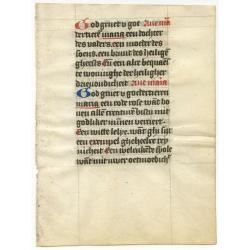 God gruet v goe Aue ma
dertiere maria een dochter
des vaders. een moeder des
soens. een bruut des heilighē
gheests Eñ een alre bequaē
te woninghe der heiligher
drieuoudicheit Aue maria
God gruet v goedertieren
maria een rode rose wāt bo
uen alle creaturē bistu mit
godliker minen verciert.
Een witte lelye. wāt ghi sijt
een exempel gheheelre rey
nicheit Een welrukēde viole
want mit uwer oetmoedich